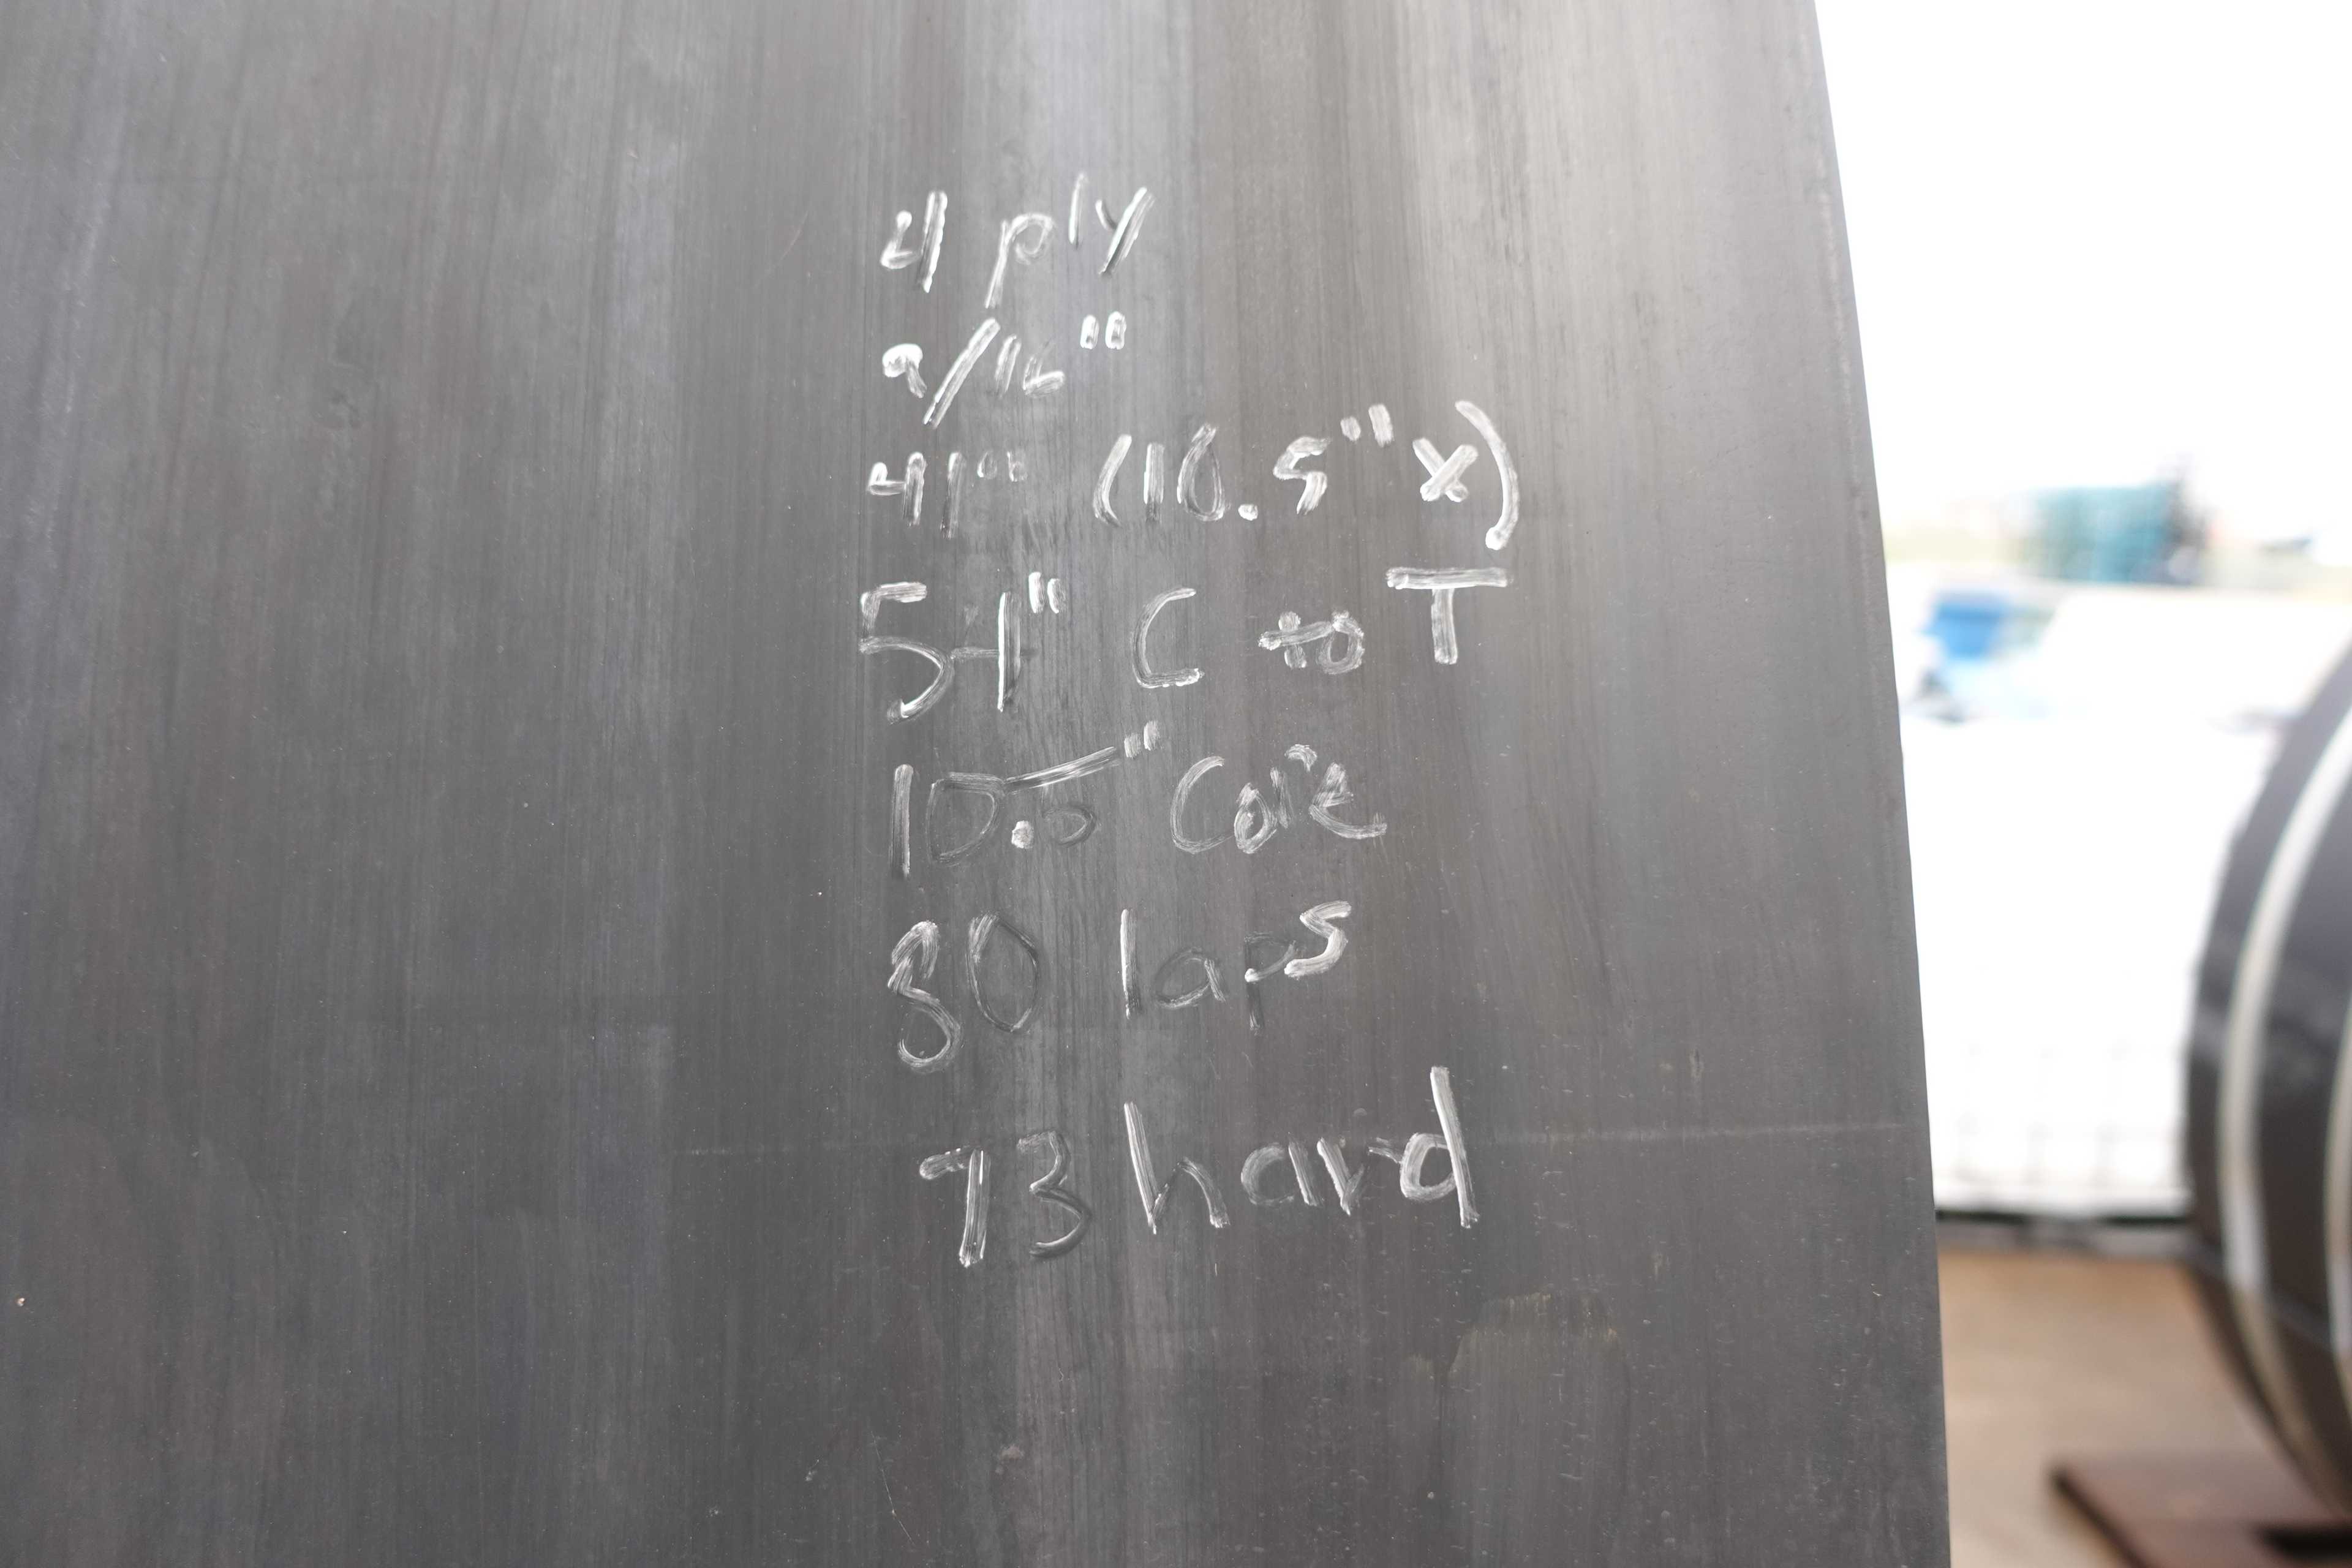 4 ply
9/16"
41" (10.5" x)
54" C to T
10.5" Core
80 laps
73 hard